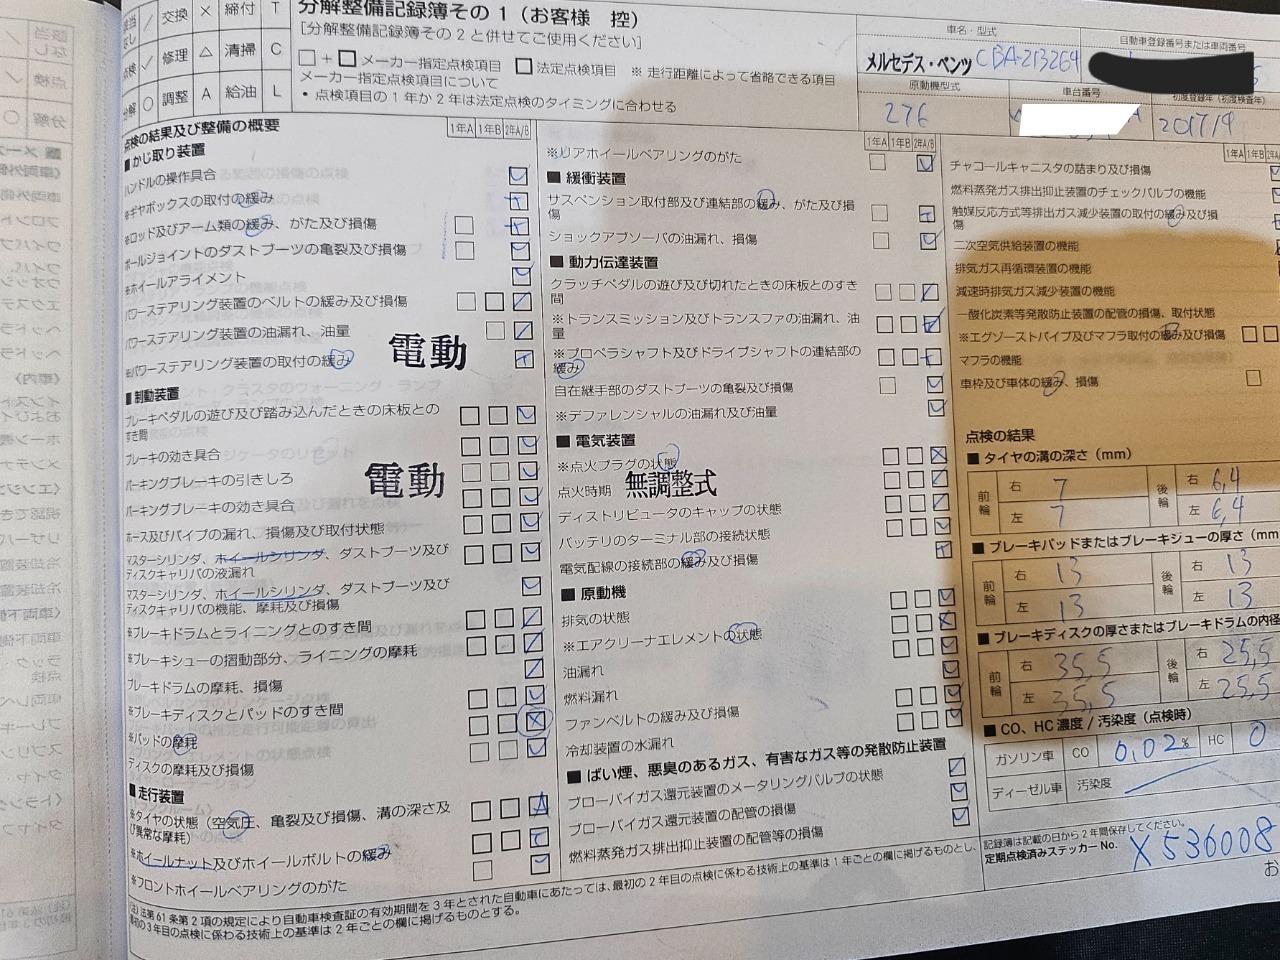 交換 × 締付 T
修理 △ 清掃 C
調整 A 給油 L
点検 ✓
分解 ○
分解整備記録簿その1(お客様 控)
[分解整備記録簿その2と併せてご使用ください]
□+□ メーカー指定点検項目 □ 法定点検項目 ※走行距離によって省略できる項目
メーカー指定点検項目について
• 点検項目の1年か2年は法定点検のタイミングに合わせる
車名・型式
メルセデス・ベンツ CBA-213264
自動車登録番号または車両番号
原動機型式
276
車台番号
初度登録年(初度検査年)
2017/9
点検の結果及び整備の概要
1年A 1年B 2年A/B
■ かじ取り装置
ハンドルの操作具合
※ギヤボックスの取付の緩み
※ロッド及びアーム類の緩み、がた及び損傷
ボールジョイントのダストブーツの亀裂及び損傷
※ホイールアライメント
パワーステアリング装置のベルトの緩み及び損傷
パワーステアリング装置の油漏れ、油量
※パワーステアリング装置の取付の緩み
電動
■ 制動装置
ブレーキペダルの遊び及び踏み込んだときの床板との
すき間
ブレーキの効き具合
パーキングブレーキの引きしろ
電動
パーキングブレーキの効き具合
ホース及びパイプの漏れ、損傷及び取付状態
マスターシリンダ、ホイールシリンダ、ダストブーツ及び
ディスクキャリパの液漏れ
マスターシリンダ、ホイールシリンダ、ダストブーツ及び
ディスクキャリパの機能、摩耗及び損傷
※ブレーキドラムとライニングとのすき間
※ブレーキシューの摺動部分、ライニングの摩耗
ブレーキドラムの摩耗、損傷
※ブレーキディスクとパッドのすき間
※パッドの摩耗
ディスクの摩耗及び損傷
■ 走行装置
※タイヤの状態(空気圧、亀裂及び損傷、溝の深さ及
び異常な摩耗)
※ホイールナット及びホイールボルトの緩み
※フロントホイールベアリングのがた
1年A 1年B 2年A/B
※リアホイールベアリングのがた
■ 緩衝装置
サスペンション取付部及び連結部の緩み、がた及び損
傷
ショックアブソーバの油漏れ、損傷
■ 動力伝達装置
クラッチペダルの遊び及び切れたときの床板とのすき
間
※トランスミッション及びトランスファの油漏れ、油
量
※プロペラシャフト及びドライブシャフトの連結部の
緩み
自在継手部のダストブーツの亀裂及び損傷
※デファレンシャルの油漏れ及び油量
■ 電気装置
※点火プラグの状態
点火時期 無調整式
ディストリビュータのキャップの状態
バッテリのターミナル部の接続状態
電気配線の接続部の緩み及び損傷
■ 原動機
排気の状態
※エアクリーナエレメントの状態
油漏れ
燃料漏れ
ファンベルトの緩み及び損傷
冷却装置の水漏れ
■ ばい煙、悪臭のあるガス、有害なガス等の発散防止装置
ブローバイガス還元装置のメータリングバルブの状態
ブローバイガス還元装置の配管の損傷
燃料蒸発ガス排出抑止装置の配管等の損傷
1年A 1年B
チャコールキャニスタの詰まり及び損傷
燃料蒸発ガス排出抑止装置のチェックバルブの機能
触媒反応方式等排出ガス減少装置の取付の緩み及び損
傷
二次空気供給装置の機能
排気ガス再循環装置の機能
減速時排気ガス減少装置の機能
一酸化炭素等発散防止装置の配管の損傷、取付状態
※エグゾーストパイプ及びマフラ取付の緩み及び損傷
マフラの機能
車枠及び車体の緩み、損傷
点検の結果
■ タイヤの溝の深さ(mm)
前輪 右 7 後輪 右 6,4
左 7 左 6,4
■ ブレーキパッドまたはブレーキシューの厚さ(mm
前輪 右 13 後輪 右 13
左 13 左 13
■ ブレーキディスクの厚さまたはブレーキドラムの内径
前輪 右 35,5 後輪 右 25,5
左 35,5 左 25,5
■ CO、HC濃度/汚染度(点検時)
ガソリン車 CO 0,02% HC 0
ディーゼル車 汚染度
記録簿は記載の日から2年間保存してください。
定期点検済みステッカーNo. X536008
お
(注)法第61条第2項の規定により自動車検査証の有効期間を3年とされた自動車にあたっては、最初の2年目の点検に係わる技術上の基準は1年ごとの欄に掲げるものとし、
最初の3年目の点検に係わる技術上の基準は2年ごとの欄に掲げるものとする。